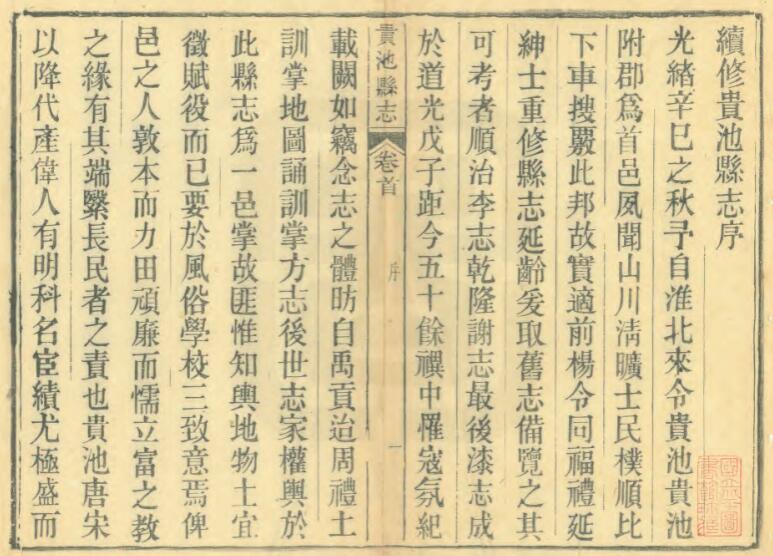 續修貴池縣志序
光緒辛巳之秋予自淮北來令貴池貴池
附郡爲首邑夙聞山川淸曠士民樸順比
下車搜覈此邦故實適前楊令同福禮延
紳士重修縣志延齡爰取舊志備覽之其
可考者順治李志乾隆謝志最後漆志成
於道光戊子距今五十餘禩中罹寇氛紀
貴池縣志
卷首
序
一
載闕如竊念志之體昉自禹貢迨周禮土
訓掌地圖誦訓掌方志後世志家權輿於
此縣志爲一邑掌故匪惟知輿地物土宜
徵賦役而已要於風俗學校三致意焉俾
邑之人敦本而力田頑廉而懦立富之教
之緣有其端繄長民者之責也貴池唐宋
以降代產偉人有明科名宦績尤極盛而